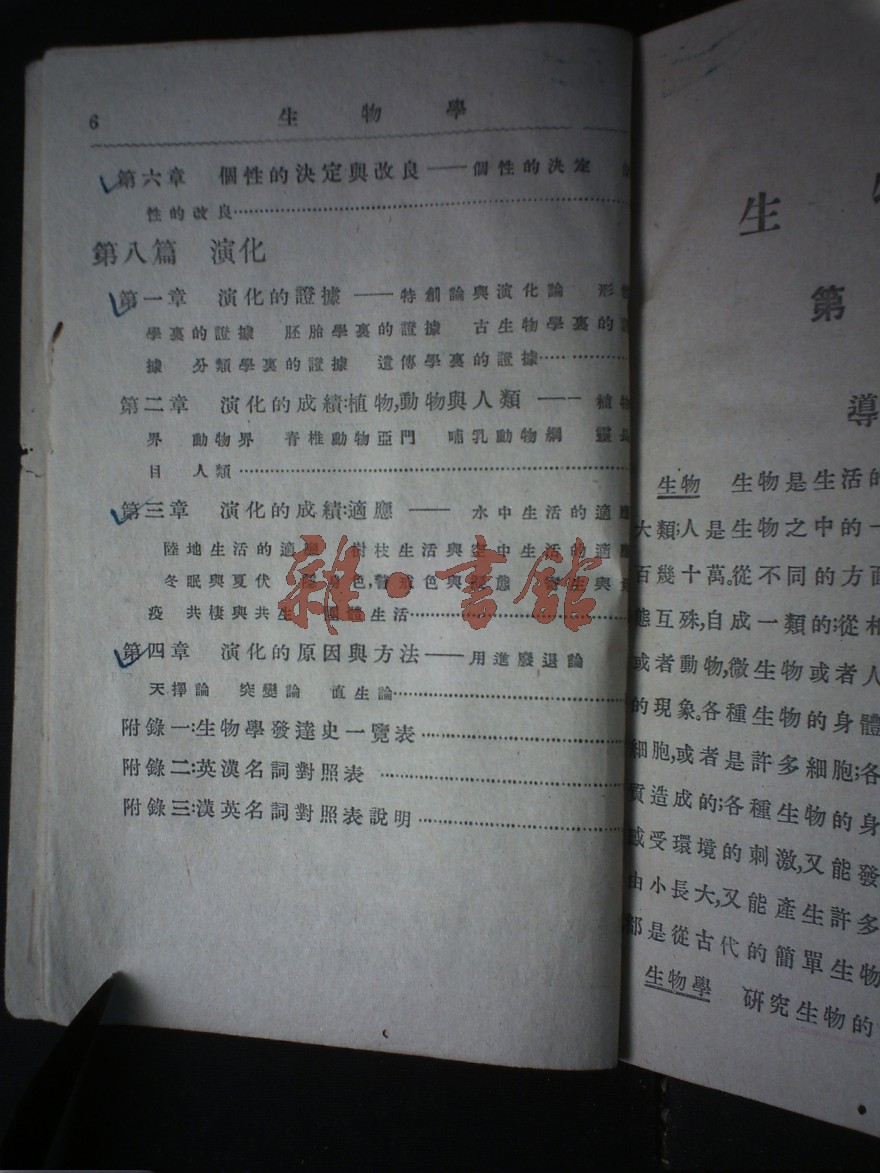 6 生物學
第六章 個性的決定與改良——個性的決定
性的改良
第八篇 演化
第一章 演化的證據——特創論與演化論 形
學裏的證據 胚胎學裏的證據 古生物學裏的
據 分類學裏的證據 遺傳學裏的證據
第二章 演化的成績:植物,動物與人類——植物
界 動物界 脊椎動物亞門 哺乳動物綱 靈長
目 人類
第三章 演化的成績:適應——水中生活的適應
陸地生活的適應 樹枝生活與空中生活的適應
冬眠與夏伏 色,警戒色與擬態 與
疫 共棲與共生 團體生活
第四章 演化的原因與方法——用進廢退論
天擇論 突變論 直生論
附錄一:生物學發達史一覽表
附錄二:英漢名詞對照表
附錄三:漢英名詞對照表說明
雜·書館
生
第
導
生物 生物是生活的
大類:人是生物之中的一
百幾十萬。從不同的方面
態互殊,自成一類的:從相
或者動物,微生物或者人
的現象。各種生物的身體
細胞,或者是許多細胞;各
質造成的;各種生物的身
感受環境的刺激,又能發
由小長大,又能產生許多
都是從古代的簡單生物
生物學 研究生物的